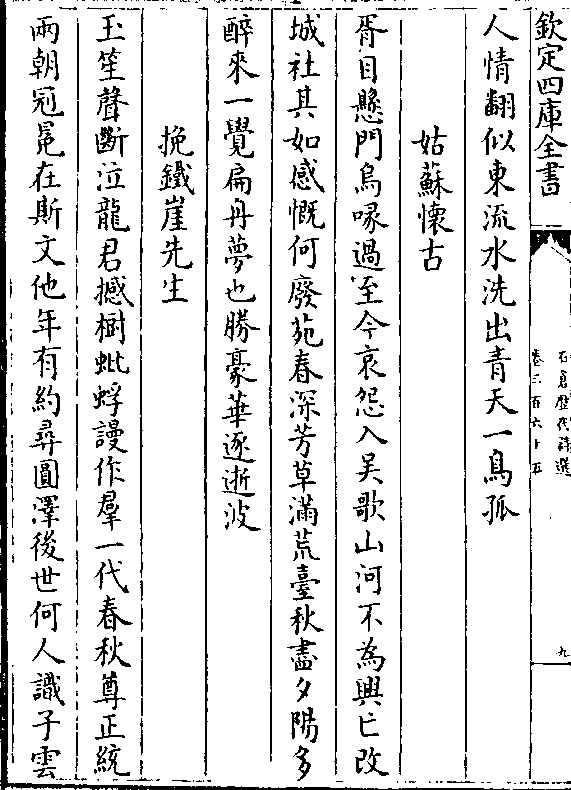 欽定四庫全書
石倉歷代詩選
卷三百六十五
九
人情翻似東流水洗出青天一鳥孤
姑蘇懷古
胥目懸門烏喙過至今哀怨入吳歌山河不為興亡改
城社其如感慨何廢苑春深芳草滿荒臺秋盡夕陽多
醉來一覺扁舟夢也勝豪華逐逝波
挽鐵崖先生
玉笙聲斷泣龍君撼樹蚍蜉謾作羣一代春秋尊正統
兩朝冠冕在斯文他年有約尋圓澤後世何人識子雲